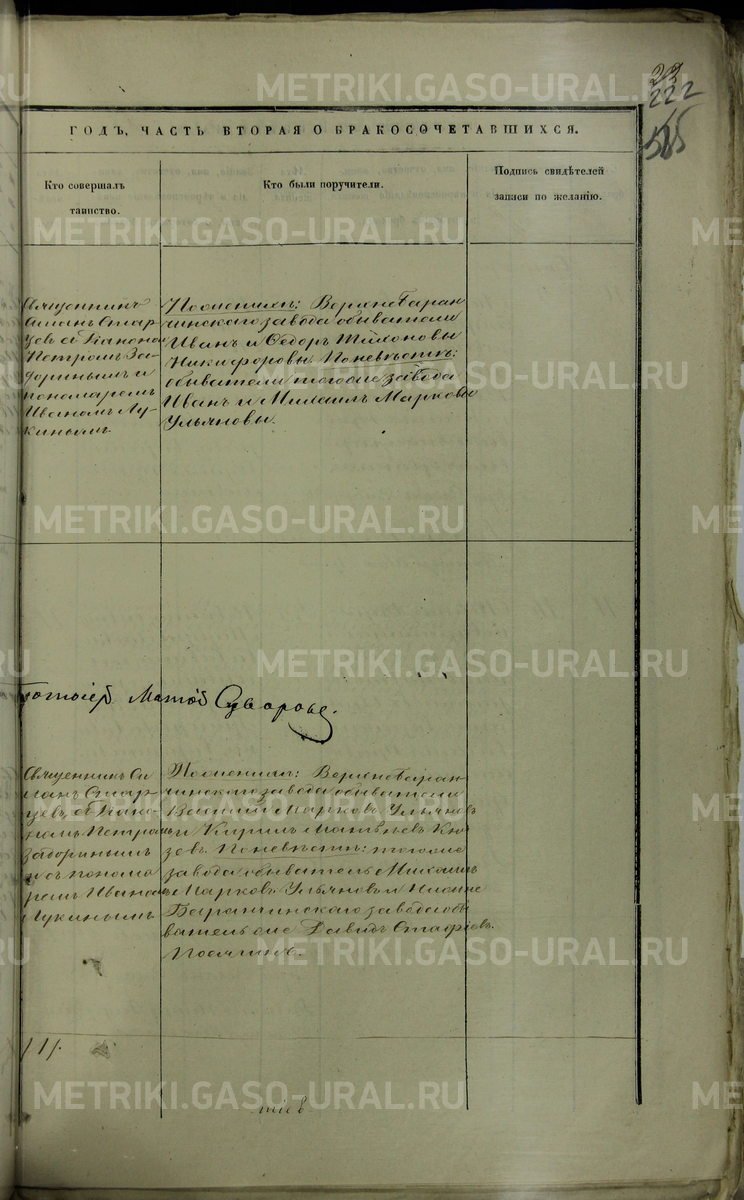 222
565
ГОДЪ, ЧАСТЬ ВТОРАЯ О БРАКОСОЧЕТАВШИХСЯ.
Кто совершалъ
таинство.
Кто были поручители.
Подпись свидѣтелей
записи по желанію.
Священникъ
Симанъ Стар
цевъ съ Діакономъ
Петромъ За
боринымъ и
пономаремъ
Иваномъ Лу
кинымъ.
По женихѣ: Верхнебаран
чинскаго завода обыватели
Иванъ и Ѳедоръ Тихоновы
Никифоровы. По невѣстѣ:
обыватели того же завода
Иванъ и Михаилъ Марковы
Ульяновы.
Священникъ Си
манъ Стар
цевъ, съ Діако
номъ Петромъ
Заборинымъ
и съ понома
ремъ Иваномъ
Лукинымъ
По женихѣ: Верхнебаран
чинскаго завода обыватели
Василій Марковъ Ульяновъ
и Кирилъ Матвѣевъ Кня
зевъ. По невѣстѣ: того же
завода обыватель Михаилъ
Марковъ Ульяновъ и Нижне
Баранчинскаго завода обы
ватель же Давидъ
METRIKI.GASO-URAL.RU